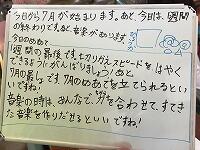 今日から7月が始まります。あと、今日は、週間
の終わりです。あと音楽があります。
今日のめあて
「週間の最後です。七切りかえスピードをはやく
できるようにがんばりましょう!」と
7月の暮しです。7月のめあてを立てられるとい
いですね!
音楽の時は、みんなで、力を合わせて、すてき
な音楽を作りだせるといいですね!